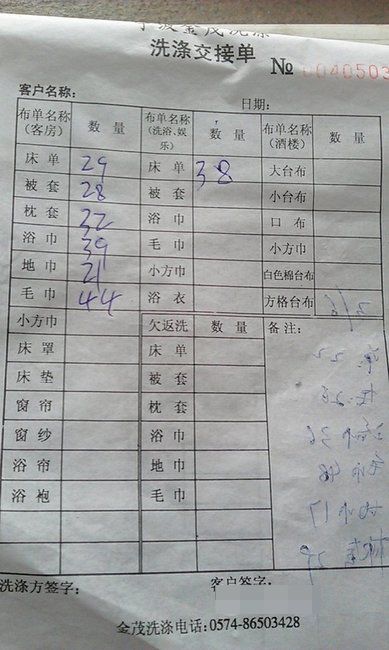 宁波金茂洗涤
洗涤交接单
№ 0040503
客户名称: 日期:
布单名称(客房) 数量 布单名称(洗浴、娱乐) 数量 布单名称(酒楼) 数量
床单 29 床单 38 大台布
被套 28 被套 小台布
枕套 32 浴巾 口布
浴巾 39 毛巾 小方巾
地巾 21 小方巾 白色棉台布
毛巾 44 浴衣 方格台布
小方巾 欠返洗 数量 备注:
床罩 床单
床垫 被套
窗帘 枕套
窗纱 浴巾
浴帘 地巾
浴袍 毛巾
洗涤方签字: 客户签字:
金茂洗涤电话:0574-86503428